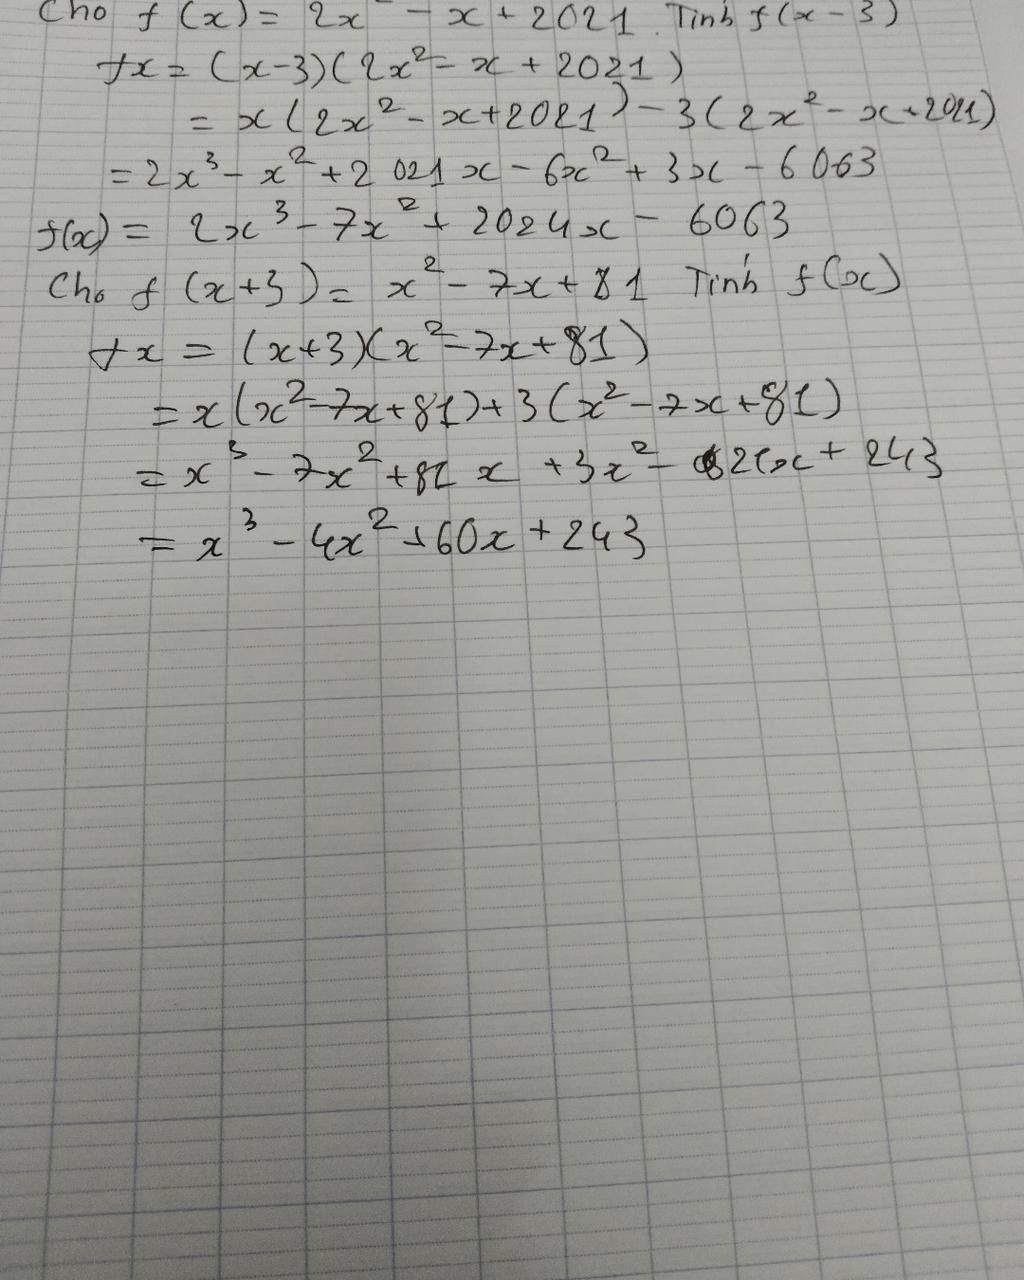 Cho f(x) = 2x² - x + 2021. Tính f(x-3)
fx = (x-3)(2x² - x + 2021)
= x(2x² - x + 2021) - 3(2x² - x + 2021)
= 2x³ - x² + 2021x - 6x² + 3x - 6063
f(x) = 2x³ - 7x² + 2024x - 6063
Cho f(x+3) = x² - 7x + 81 Tính f(x)
fx = (x+3)(x² - 7x + 81)
= x(x² - 7x + 81) + 3(x² - 7x + 81)
= x³ - 7x² + 81x + 3x² - 21x + 243
= x³ - 4x² + 60x + 243